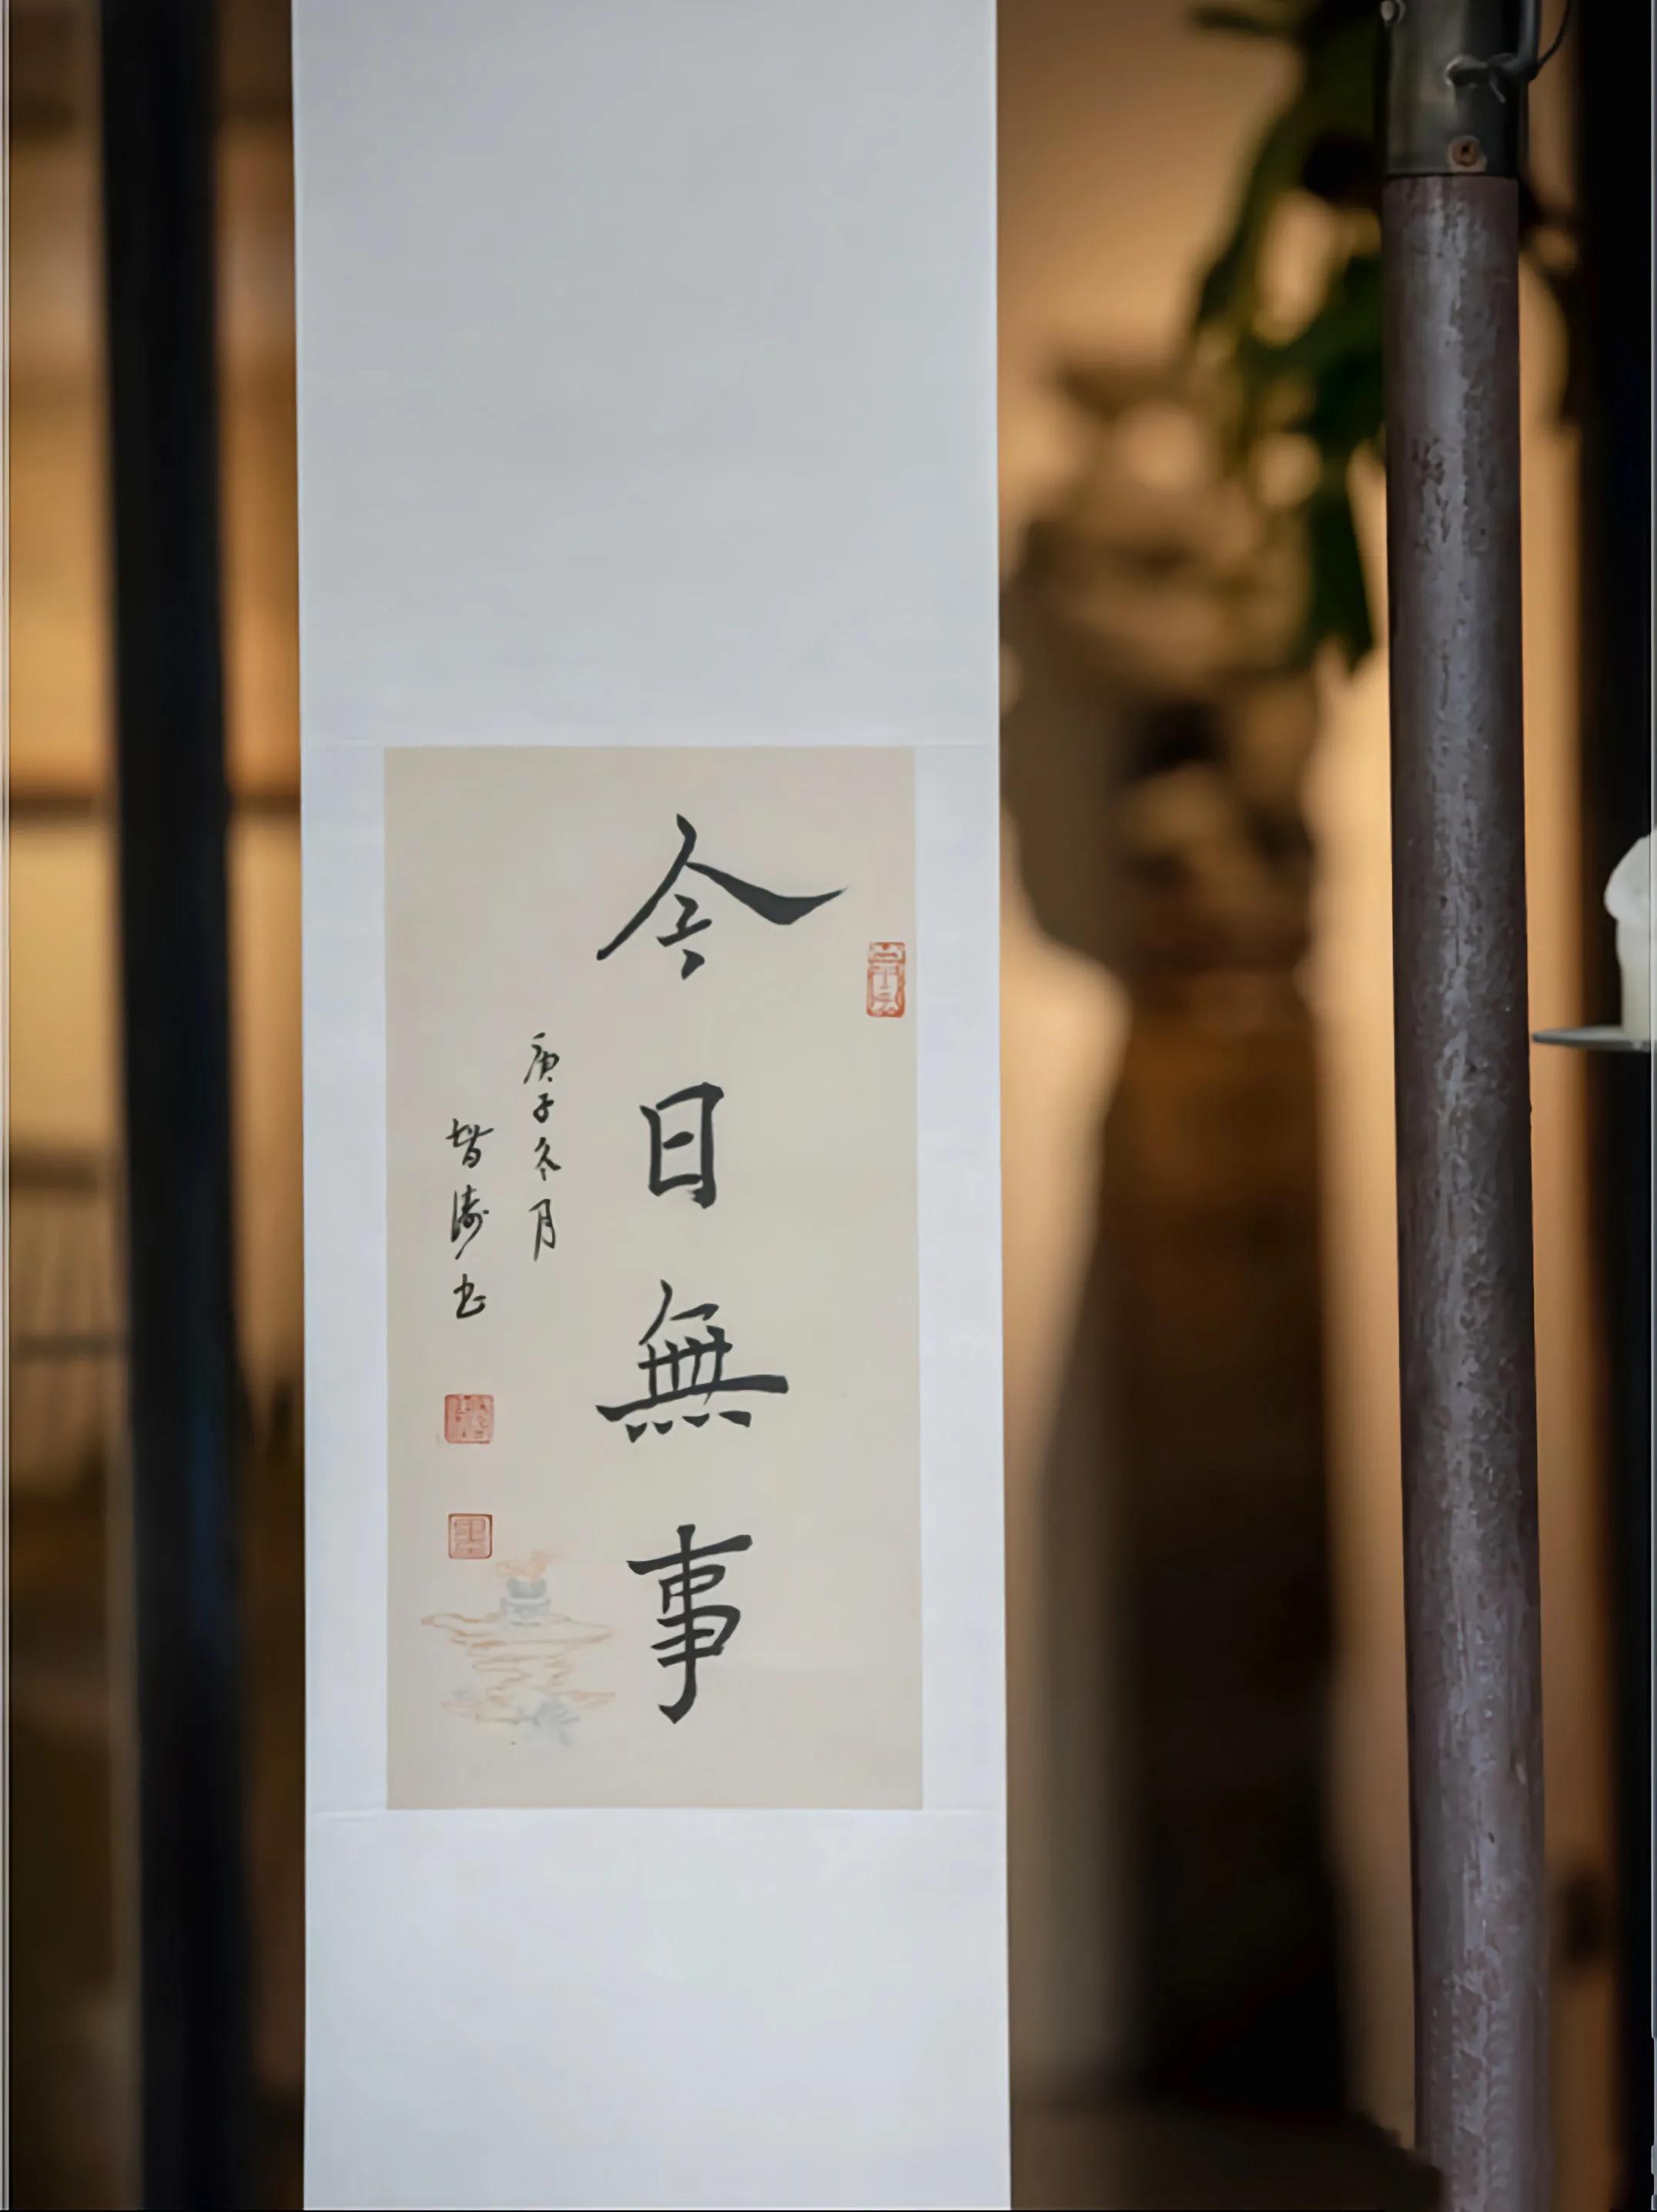 今日無事
庚子冬月
智濤书